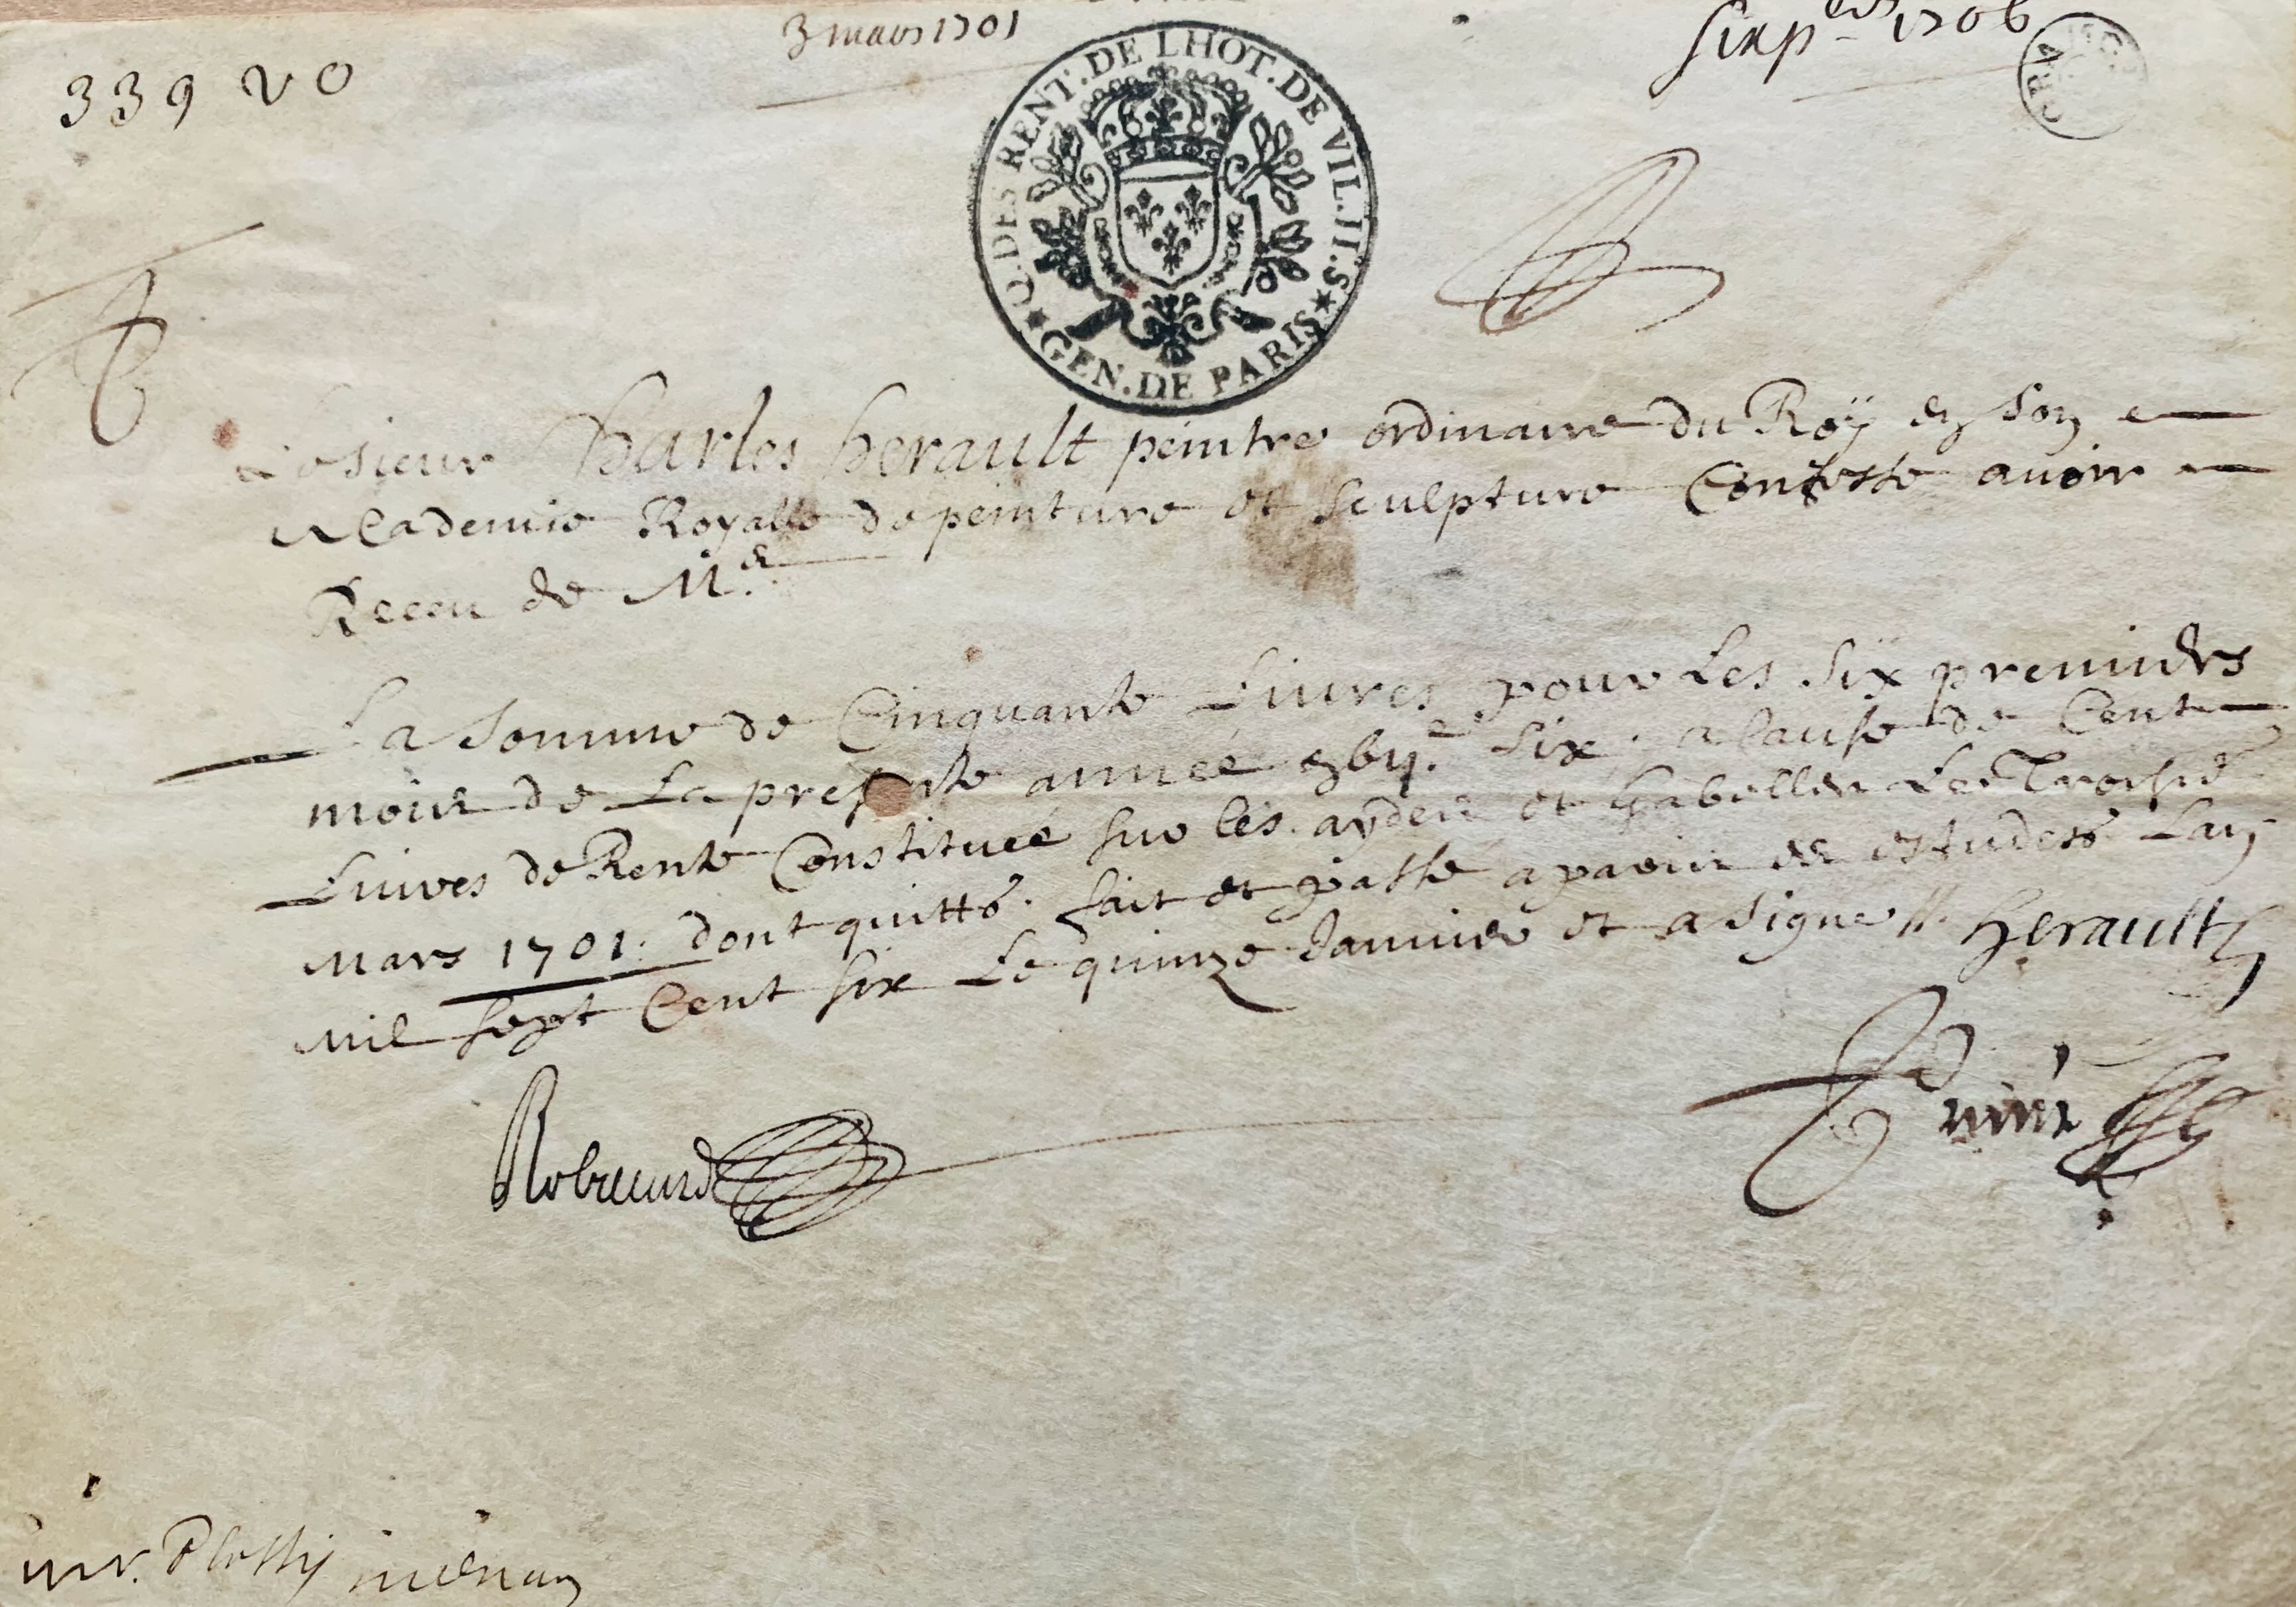 3 mars 1701
six p.ers 1706
339 vo
Q. DES RENT. DE LHOT. DE VIL. II. S. ★ GEN. DE PARIS ★
Le sieur Charles herault peintre ordinaire du Roÿ en son
Academie Royalle de peinture et sculpture Confesse avoir
Receu de M.r
La somme de Cinquante Livres pour Les six premiers
mois de La presente année gbij.c six. a cause de Cent
Livres de Rente Constituée sur les. aydes et Gabelles Le Troisie
Mars 1701. dont quitte. fait et passé a paris es estudes Lan
Mil sept Cent six Le quinze Janvier et a signe //. herault
inv.